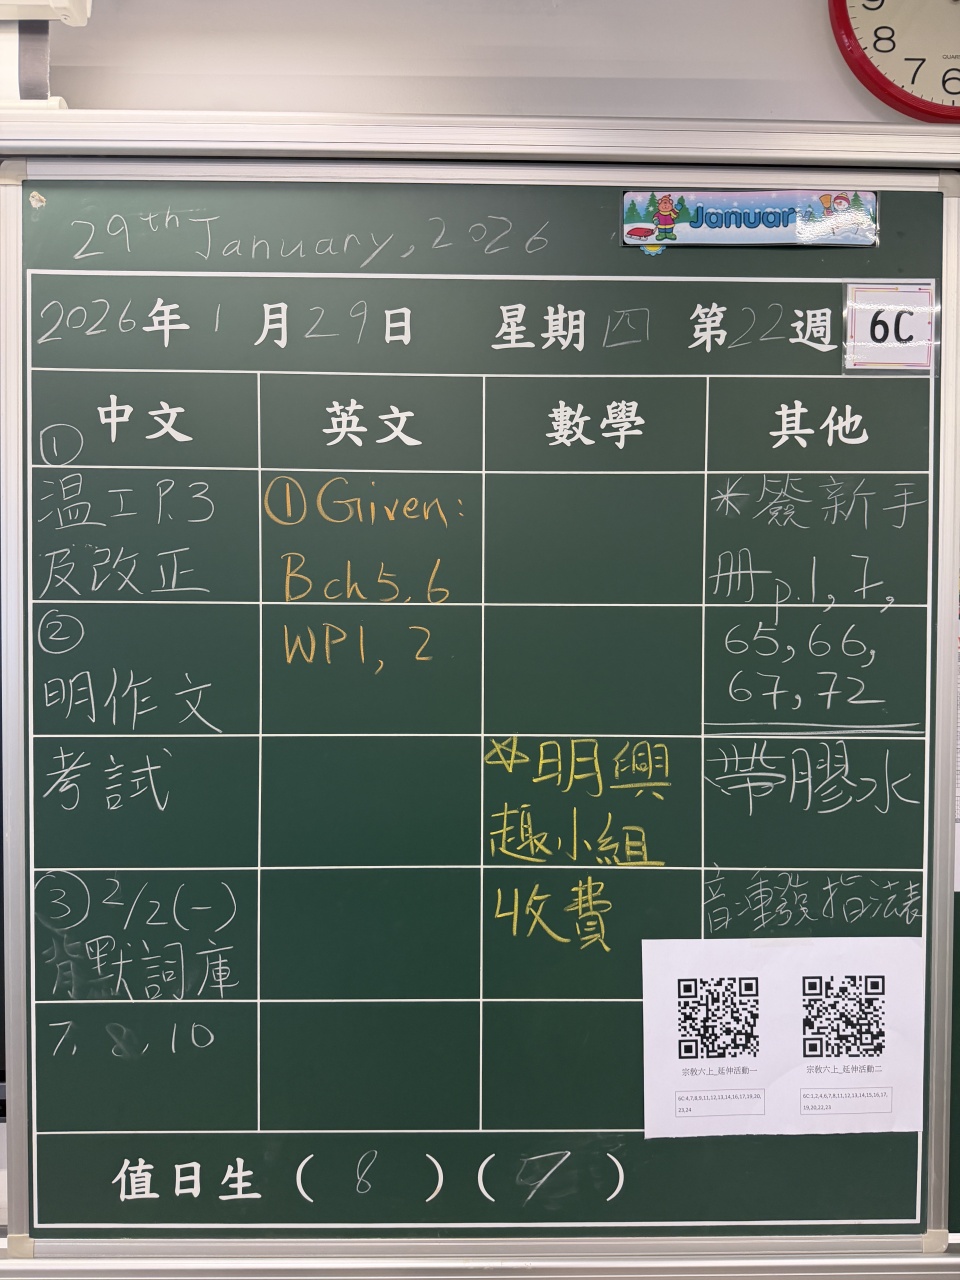 9
8
7
6
QUARTZ
29th January, 2026
Januar
2026年1月29日 星期四 第22週 6C
中文
英文
數學
其他
①
溫工P.3
及改正
②
明作文
考試
③2/2(一)
背默詞庫
7, 8, 10
①Given:
Bch5,6
WP1, 2
☆明興
趣小組
收費
*簽新手
冊p.1, 7,
65, 66,
67, 72
帶膠水
音:重發指法表
宗教六上_延伸活動一
6C:4,7,8,9,11,12,13,14,16,17,19,20,
23,24
宗教六上_延伸活動二
6C:1,2,4,6,7,8,11,12,13,14,15,16,17,
19,20,22,23
值日生 ( 8 ) ( 9 )